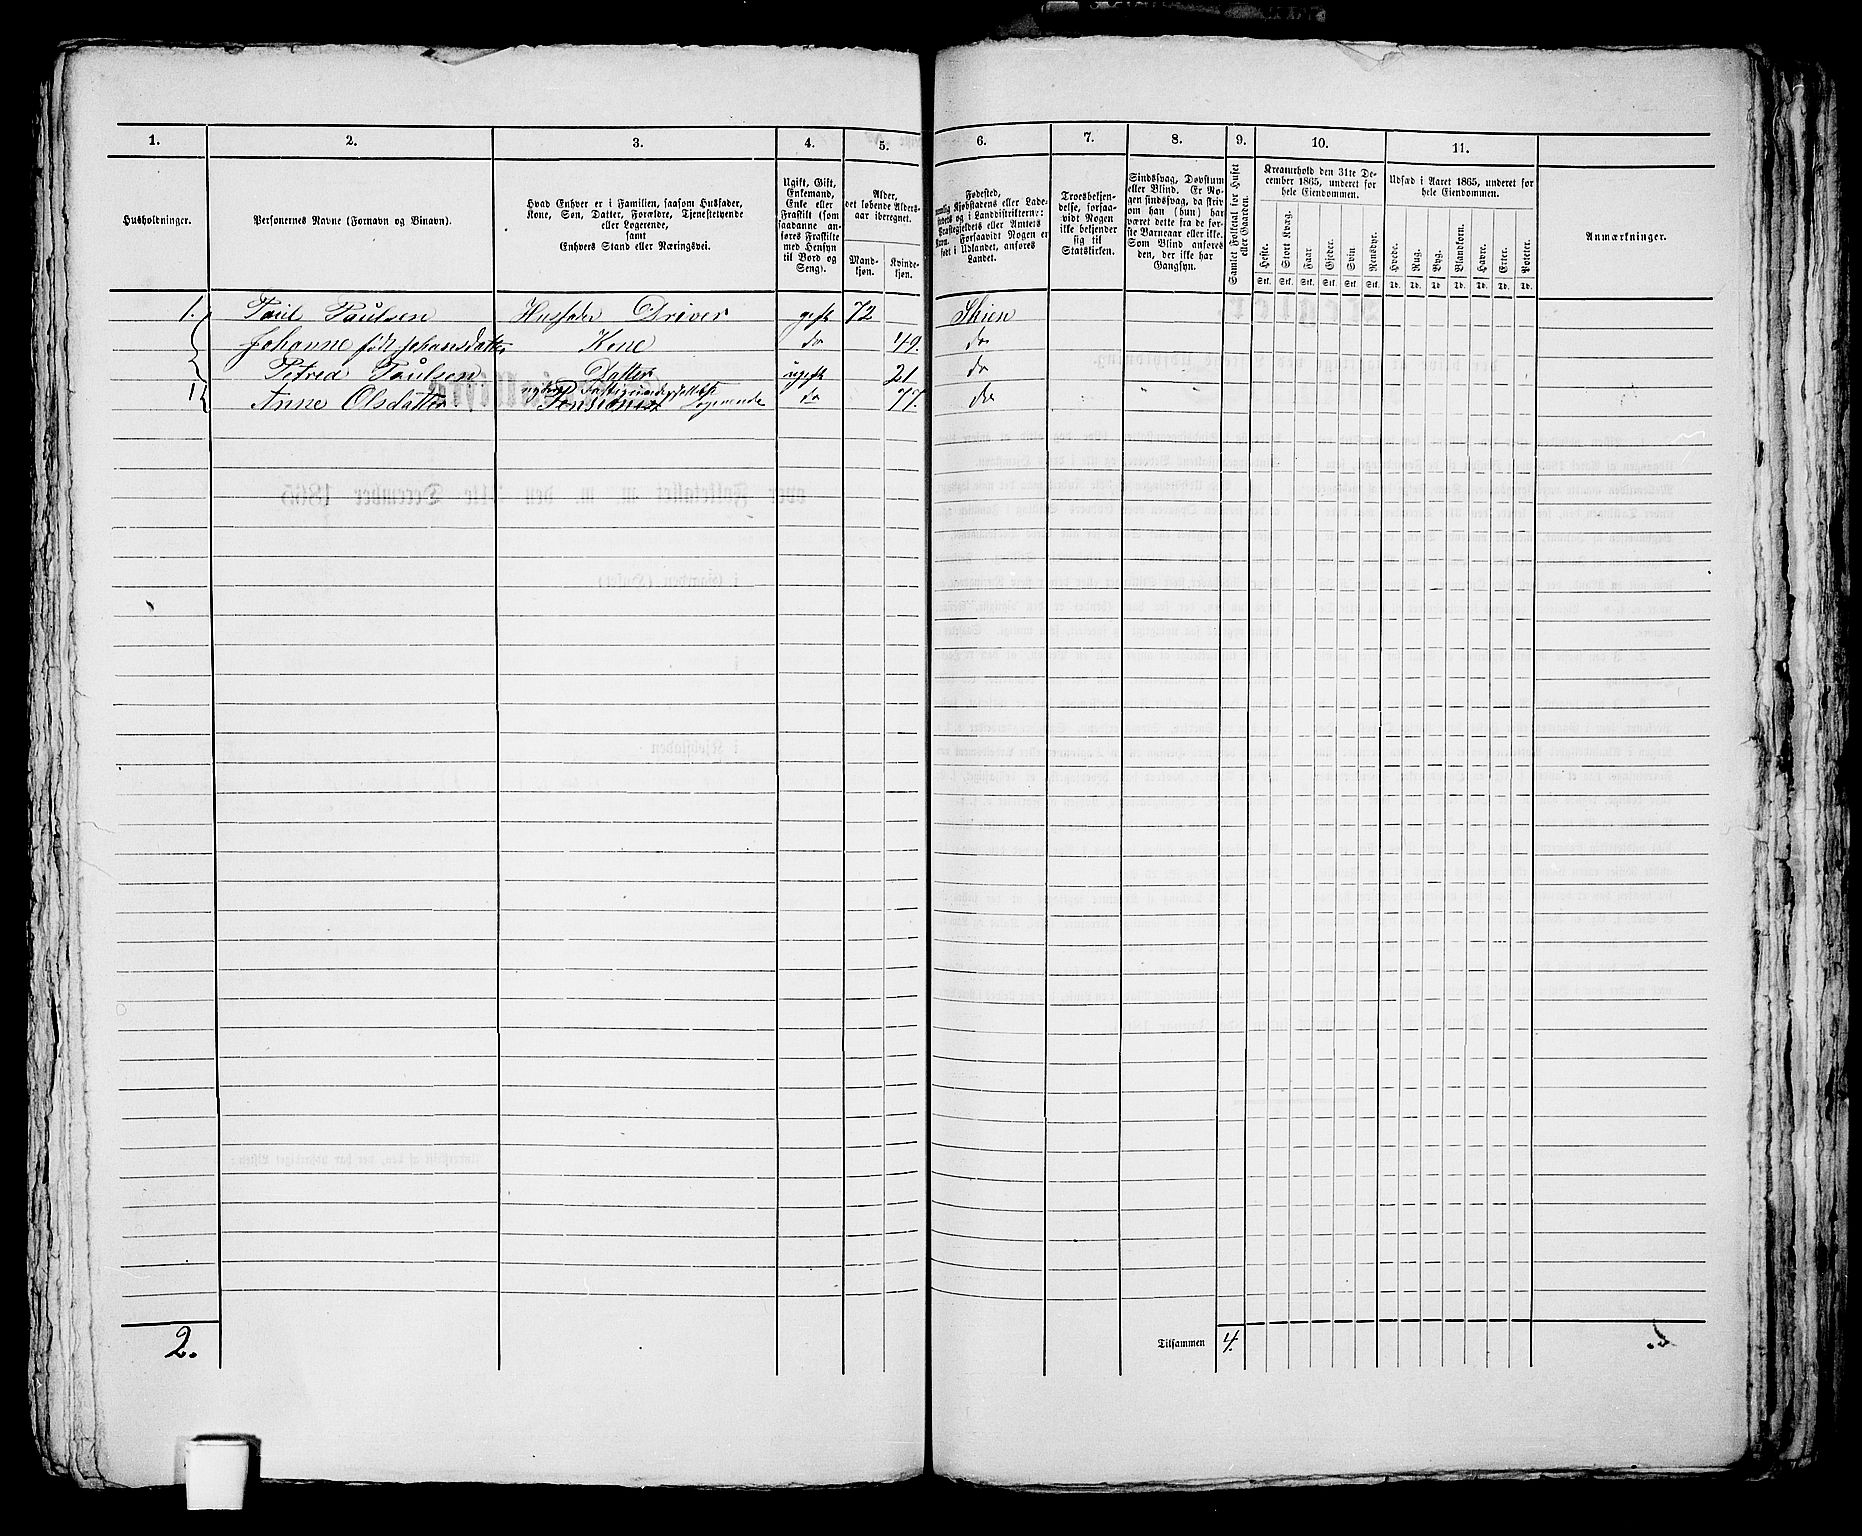 1. 2. 3. 4. 5. 6. 7. 8. 9. 10. 11.
Husholdninger.
Personernes Navne (Fornavn og Binavn).
Hvad Enhver er i Familien, saasom Husfader,
Kone, Søn, Datter, Forældre, Tjenestetyende
eller Logerende,
samt
Enhvers Stand eller Næringsvei.
Ugift, Gift,
Enkemand,
Enke eller
Fraskilt (som
saadanne an-
føres Fraskilte
med Hensyn
til Bord og
Seng).
Alder,
det løbende Alders-
aar iberegnet.
Mand-
kjøn.
Kvinde-
kjøn.
Fødested,
nemlig Kjøbstadens eller Lade-
stedets og i Landdistrikterne:
Præstegjeldets eller Amtets
Navn. Forsaavidt Nogen er
født i Udlandet, anføres
Landet.
Troesbekjen-
delse, forsaa-
vidt Nogen
ikke bekjender
sig til
Statskirken.
Sindssvag, Døvstum
eller Blind. Er No-
gen sindssvag, da skriv
om han (hun) har
været dette fra de før-
ste Barneaar eller ikke.
Som Blind anføres
den, der ikke har
Gangsyn.
Samlet Folketal for Huset
eller Gaarden.
Kreaturhold den 31te De-
cember 1865, underet for
hele Eiendommen.
Heste. Stort Kvæg. Faar. Gjeder. Svin. Rensdyr.
Stk. Stk. Stk. Stk. Stk. Stk.
Udsæd i Aaret 1865, underet for
hele Eiendommen.
Hvede. Rug. Byg. Blandkorn. Havre. Erter. Poteter.
Td. Td. Td. Td. Td. Td. Td.
Anmærkninger.
1. Paul Paulsen Husfader Driver gift 72 Skien
Johanne født Johansdatter Kone do 49. do
Petrea Paulsen Datter ugift 21 do
1 Anne Olsdatter Pensionist Logerende do 77. do
2. Tilsammen 4.